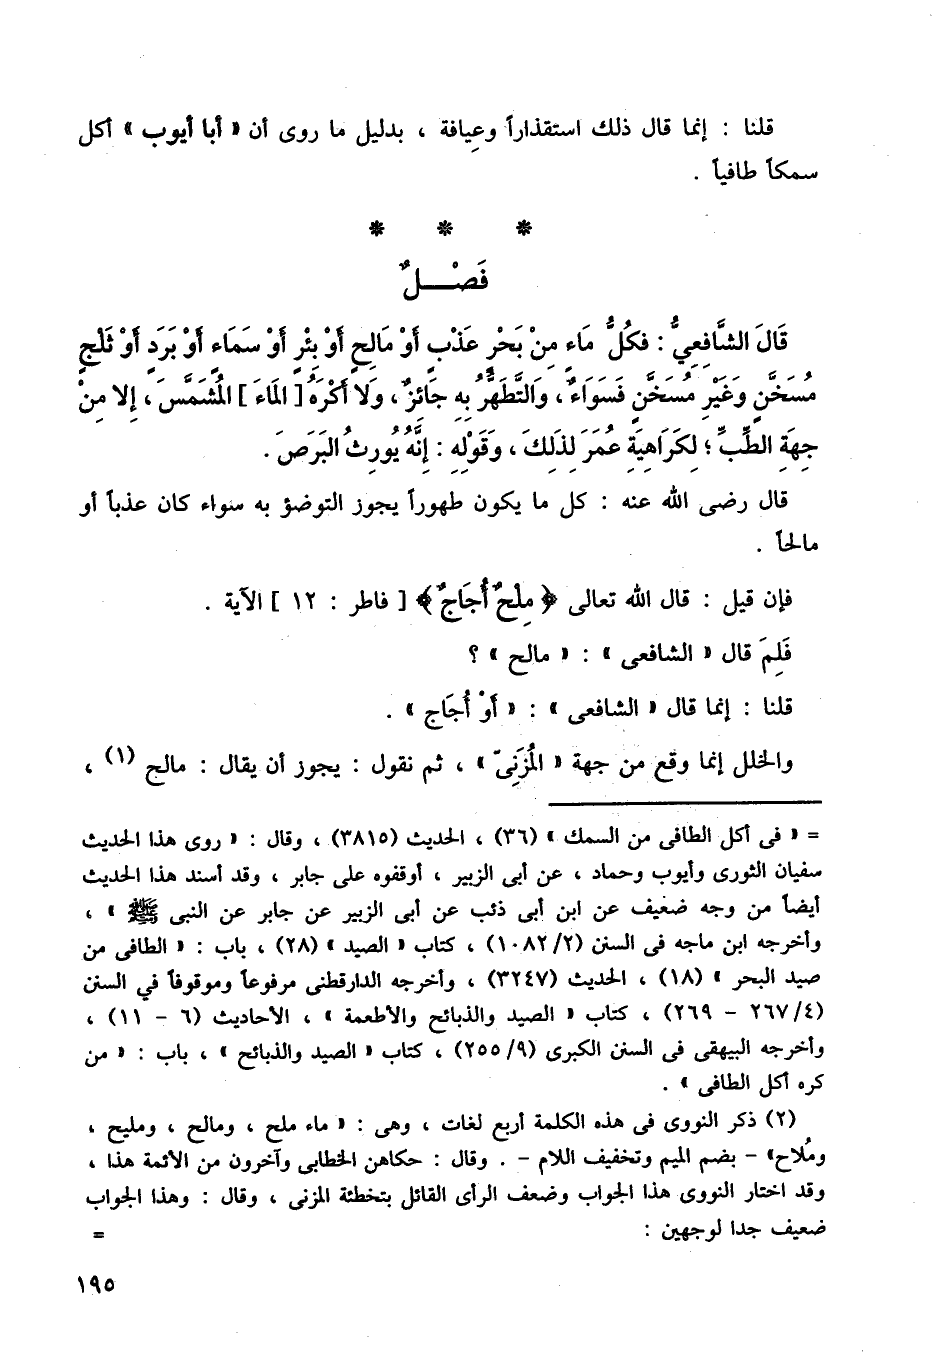 قلنا : إنما قال ذلك استقذاراً وعِيافة ، بدليل ما روى أن « أبا أيوب » أكل
سمكاً طافياً .
* * *
فَصْــــلٌ
قَالَ الشَّافِعِيُّ : فكُلُّ مَاءٍ مِنْ بَحْرٍ عَذْبٍ أَوْ مَالِحٍ أَوْ بِئْرٍ أَوْ سَمَاءٍ أَوْ بَرَدٍ أَوْ ثَلْجٍ
مُسَخَّنٍ وَغَيْرِ مُسَخَّنٍ فَسَوَاءٌ ، وَالتَّطَهُّرُ بِهِ جَائِزٌ ، وَلَا أَكْرَهُ [ المَاءَ ] المُشَمَّسَ ، إِلا مِنْ
جِهَةِ الطِّبِّ ؛ لِكَرَاهِيَةِ عُمَرَ لِذَلِكَ ، وَقَوْلِهِ : إِنَّهُ يُورِثُ البَرَصَ .
قال رضى الله عنه : كل ما يكون طهوراً يجوز التوضؤ به سواء كان عذباً أو
مالحاً .
فإن قيل : قال الله تعالى ﴿ مِلْحٌ أُجَاجٌ ﴾ [ فاطر : ١٢ ] الآية .
فَلِمَ قال « الشافعى » : « مالح » ؟
قلنا : إنما قال « الشافعى » : « أَوْ أُجَاجٍ » .
والخلل إنما وقع من جهة « المُزَنِىّ » ، ثم نقول : يجوز أن يقال : مالح (١) ،
= « فى أكل الطافى من السمك » (٣٦) ، الحديث (٣٨١٥) ، وقال : « روى هذا الحديث
سفيان الثورى وأيوب وحماد ، عن أبى الزبير ، أوقفوه على جابر ، وقد أسند هذا الحديث
أيضاً من وجه ضعيف عن ابن أبى ذئب عن أبى الزبير عن جابر عن النبى ﷺ » ،
وأخرجه ابن ماجه فى السنن (١٠٨٢/٢) ، كتاب « الصيد » (٢٨) ، باب : « الطافى من
صيد البحر » (١٨) ، الحديث (٣٢٤٧) ، وأخرجه الدارقطنى مرفوعاً وموقوفاً في السنن
(٢٦٧/٤ - ٢٦٩) ، كتاب « الصيد والذبائح والأطعمة » ، الأحاديث (٦ - ١١) ،
وأخرجه البيهقى فى السنن الكبرى (٢٥٥/٩) ، كتاب « الصيد والذبائح » ، باب : « من
كره أكل الطافى » .
(٢) ذكر النووى فى هذه الكلمة أربع لغات ، وهى : « ماء ملح ، ومالح ، ومليح ،
ومُلاح» - بضم الميم وتخفيف اللام - . وقال : حكاهن الخطابى وآخرون من الأئمة هذا ،
وقد اختار النووى هذا الجواب وضعف الرأى القائل بتخطئة المزنى ، وقال : وهذا الجواب
ضعيف جدا لوجهين :
=
١٩٥